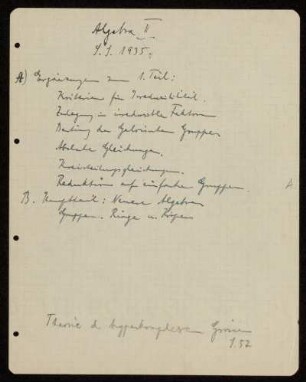 Algebra II
S.S. 1935.
A) Ergänzungen zum 1. Teil:
Kriterien für Irreduzibilität.
Zerlegung in irreduzible Faktoren
der Galoisschen Gruppe
Abelsche Gleichungen.
Kreisteilungsgleichungen.
Reduktion auf einfache Gruppen.
A
B. Hauptteil: Neuere Algebra
Gruppen. Ringe u. Körper
Theorie d. hyperkomplexen Grössen
S. 52